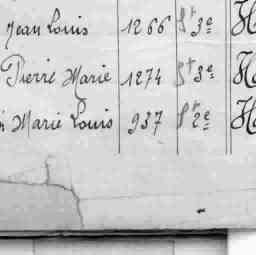 Jean Louis 1266 St 3e H
Pierre Marie 1274 St 3e H
Marie Louis 937 St 2e H